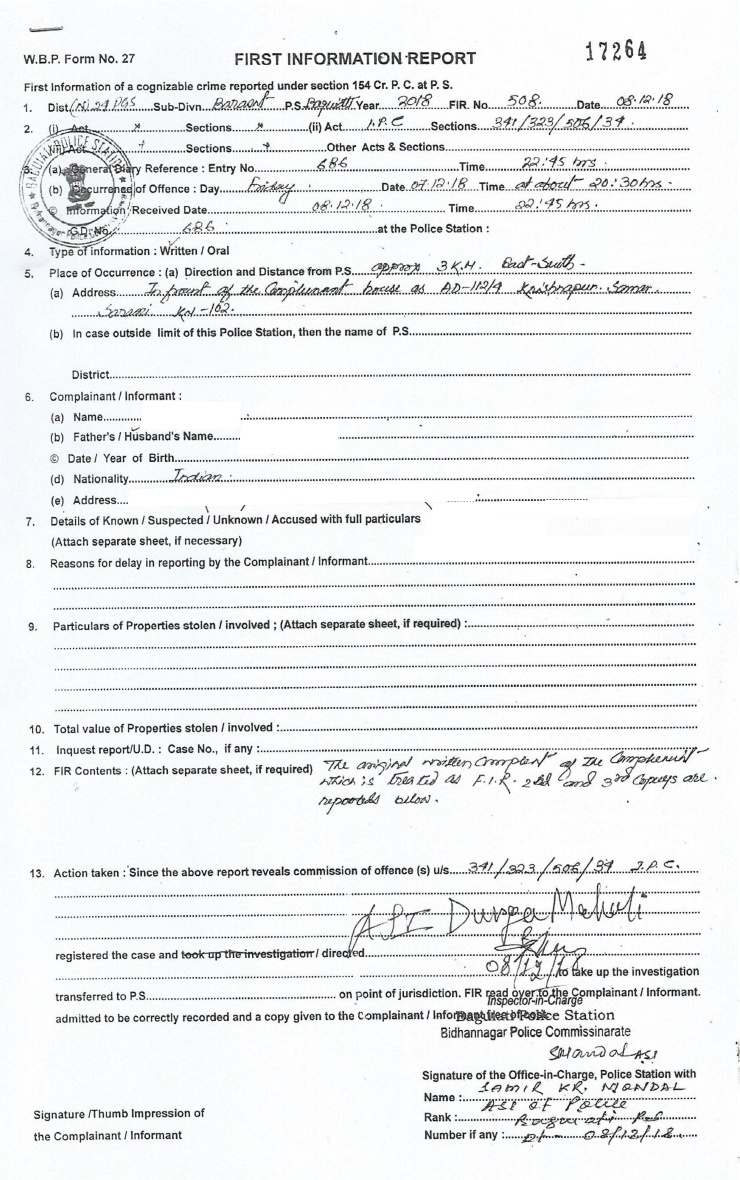 17264
W.B.P. Form No. 27 FIRST INFORMATION REPORT
First Information of a cognizable crime reported under section 154 Cr. P. C. at P. S.
1. Dist (N) 24 PGS Sub-Divn. Barasat P.S. Baguiati Year 2018 FIR. No 508. Date 08.12.18
2. (i) Act x Sections x (ii) Act I.P.C Sections 341/323/506/34.
Act Sections Other Acts & Sections
BAGUIATI POLICE STATION
(a) General Diary Reference : Entry No. 686 Time 22:45 hrs.
(b) Occurrence of Offence : Day Friday Date 07.12.18 Time at about 20:30 hrs.
© Information Received Date 08.12.18. Time 22:45 hrs.
G.D. No. 686 at the Police Station :
4. Type of information : Written / Oral
5. Place of Occurrence : (a) Direction and Distance from P.S. approx 3 K.M. East-South
(a) Address In front of the Complainant house as AD-112/4 Krishnapur Samar
Sarani Kol-102.
(b) In case outside limit of this Police Station, then the name of P.S.
District
6. Complainant / Informant :
(a) Name
(b) Father's / Husband's Name
© Date / Year of Birth
(d) Nationality Indian
(e) Address
7. Details of Known / Suspected / Unknown / Accused with full particulars
(Attach separate sheet, if necessary)
8. Reasons for delay in reporting by the Complainant / Informant
9. Particulars of Properties stolen / involved ; (Attach separate sheet, if required) :
10. Total value of Properties stolen / involved :
11. Inquest report/U.D. : Case No., if any :
12. FIR Contents : (Attach separate sheet, if required) The original written Complaint of the Complainant
which is treated as F.I.R. 2nd and 3rd Copeys are
reported below.
13. Action taken : Since the above report reveals commission of offence (s) u/s 341/323/506/34 I.P.C.
ASI Durga Mahali
registered the case and took up the investigation / directed
08/12/18 to take up the investigation
transferred to P.S. on point of jurisdiction. FIR read over to the Complainant / Informant.
Inspector-in-Charge
admitted to be correctly recorded and a copy given to the Complainant / Informant free of cost
Baguiati Police Station
Bidhannagar Police Commissinarate
SMondal ASI
Signature of the Office-in-Charge, Police Station with
Name : SAMIR KR. MONDAL
Rank : ASI of Police
Baguiati P.S.
Number if any : Dt- 08/12/18
Signature /Thumb Impression of
the Complainant / Informant